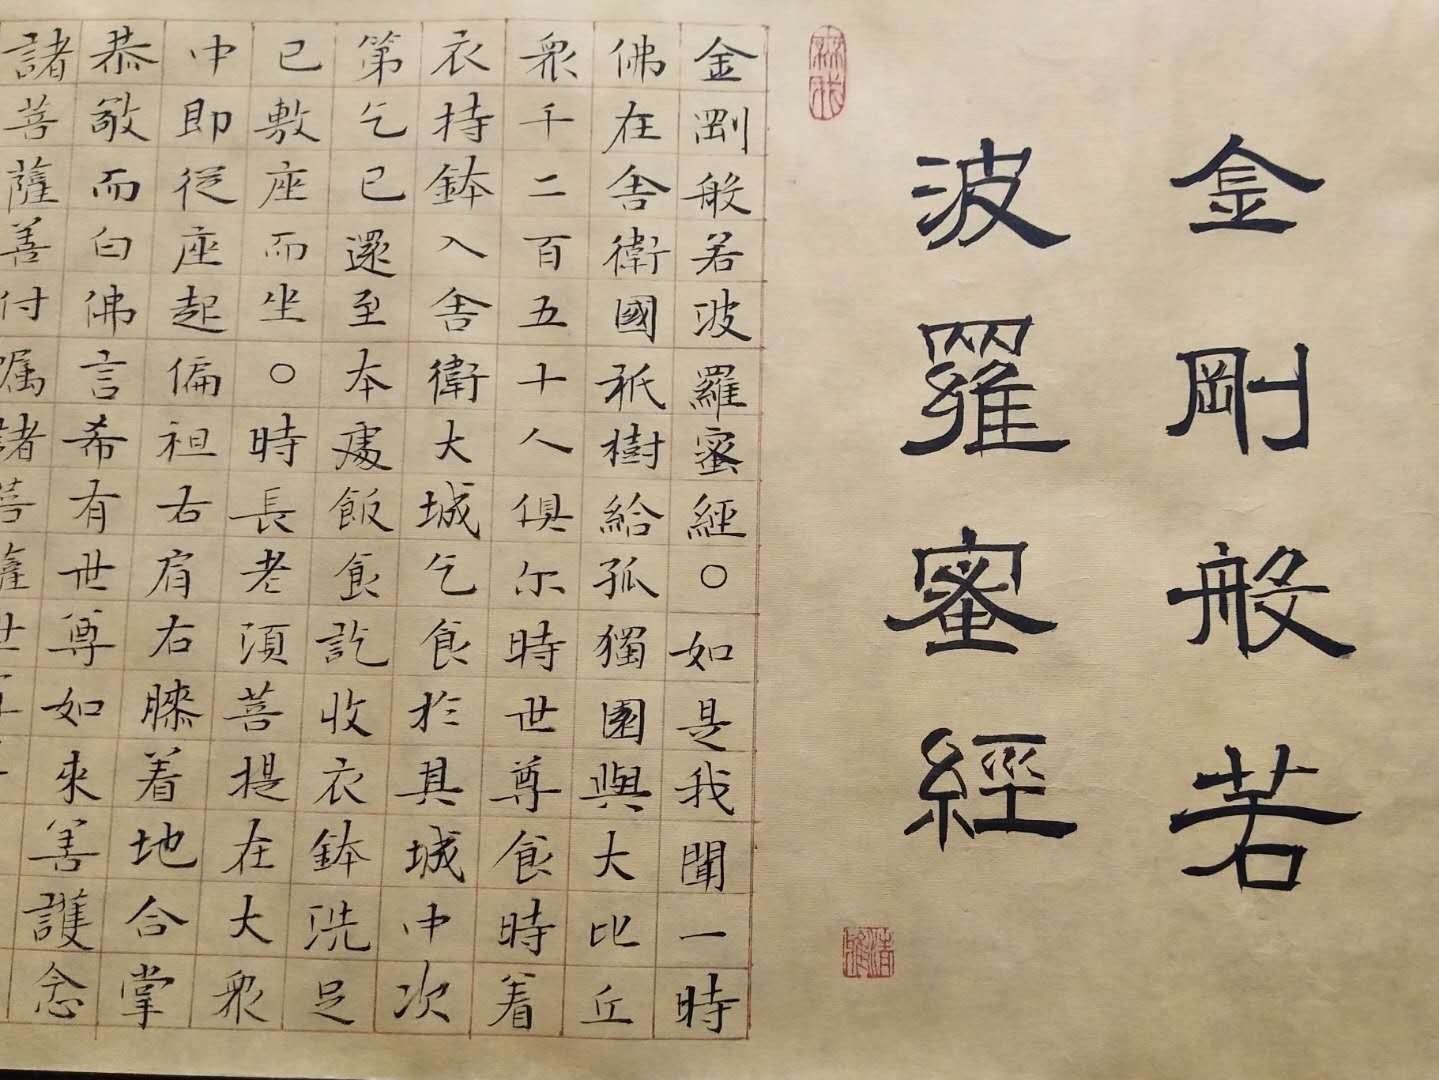 金剛般若
波羅蜜經
金剛般若波羅蜜經○如是我聞一時
佛在舍衛國祇樹給孤獨園與大比丘
眾千二百五十人俱尔時世尊食時着
衣持鉢入舍衛大城乞食於其城中次
第乞已還至本處飯食訖收衣鉢洗足
已敷座而坐○時長老須菩提在大眾
中即從座起偏袒右肩右膝着地合掌
恭敬而白佛言希有世尊如來善護念
諸菩薩善付嘱諸菩薩世